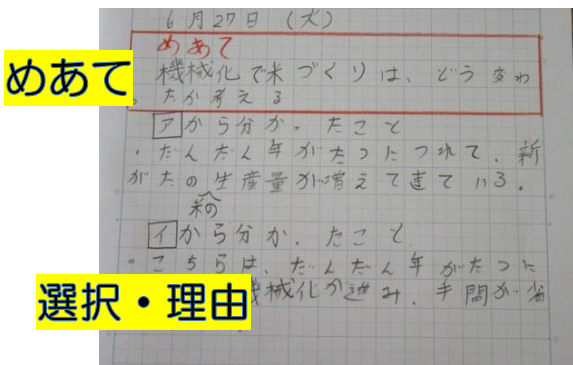 6月27日（火）
めあて
めあて
機械化で米づくりは、どう変わ
ったか考える
アから分かったこと
・だんだん年がたつにつれて、新
がたの生産量が増えて
米の
イから分かったこと
・こちらは、だんだん年がたつに
機械化が進み、手間が省
選択・理由